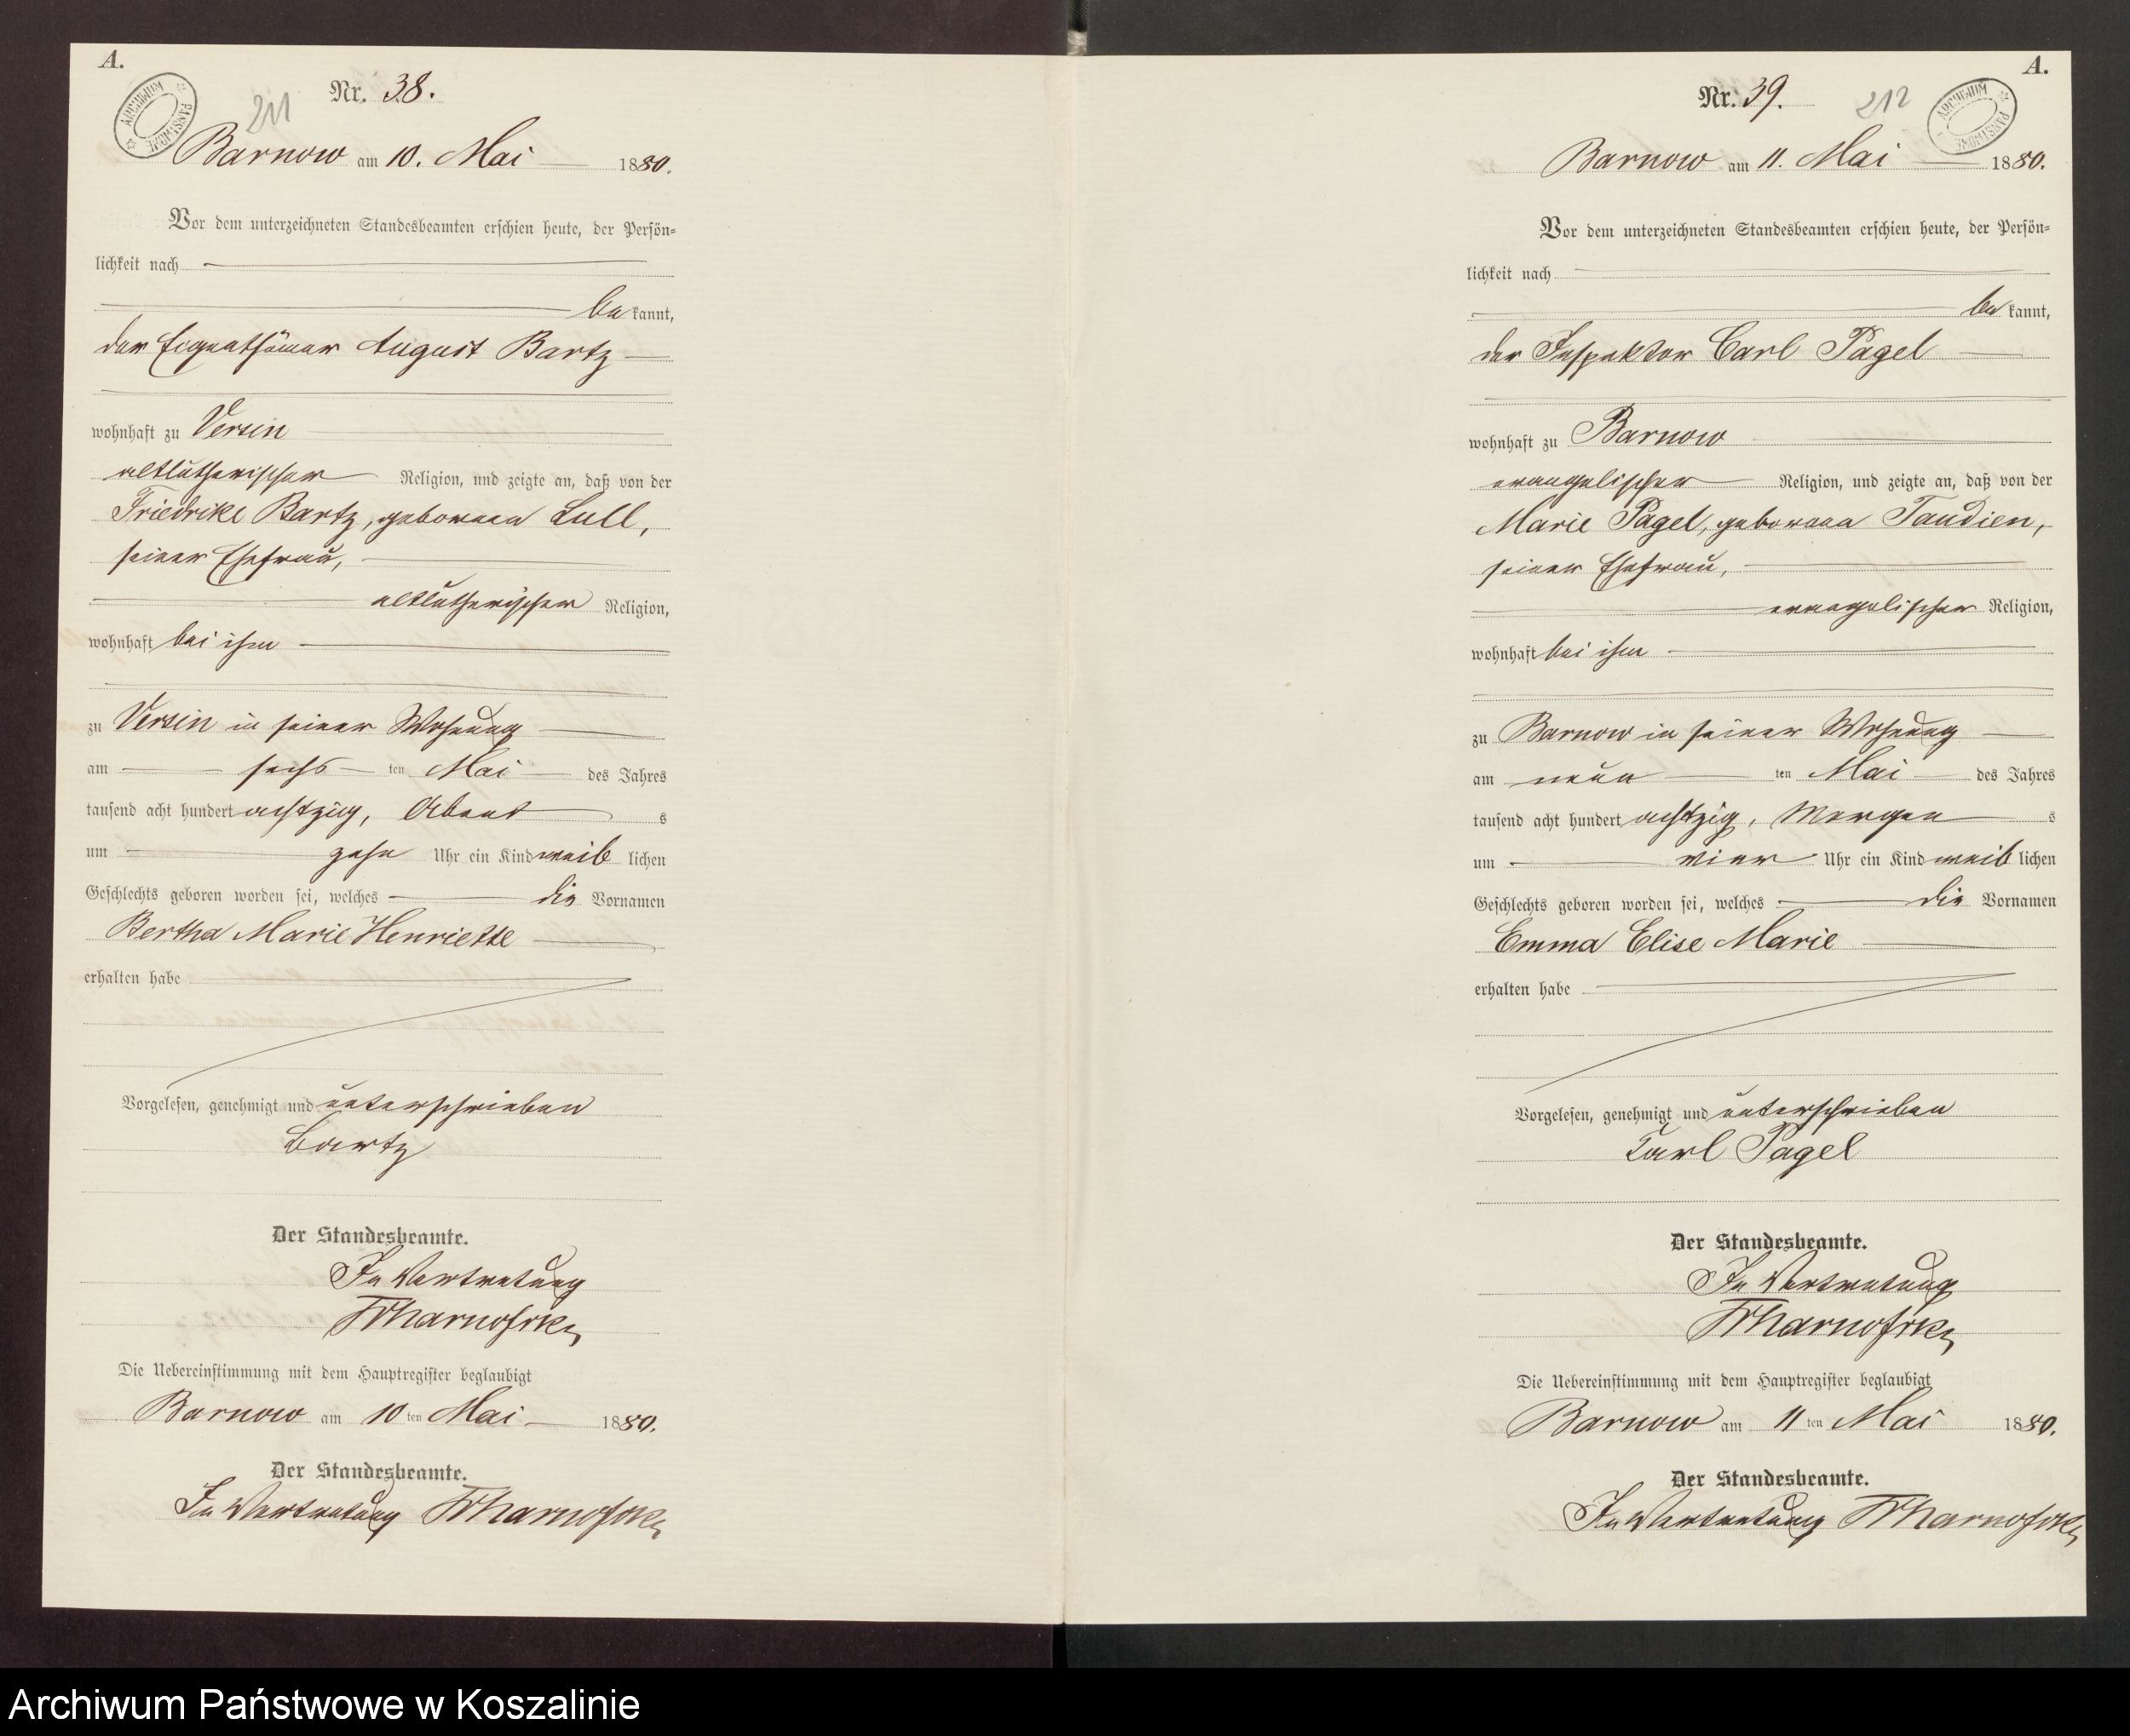 A.
ARCHIWUM PAŃSTWOWE
211
Nr. 38.
Barnow am 10. Mai 1880.
Vor dem unterzeichneten Standesbeamten erschien heute, der Persön=
lichkeit nach
bekannt,
der Eigenthümer August Bartz
wohnhaft zu Versin
altlutherischer Religion, und zeigte an, daß von der
Friedrike Bartz, geborenen Lull,
seiner Ehefrau,
altlutherischer Religion,
wohnhaft bei ihm
zu Versin in seiner Wohnung
am sechs ten Mai des Jahres
tausend acht hundert achtzig, Abends
um zehn Uhr ein Kind weiblichen
Geschlechts geboren worden sei, welches die Vornamen
Bertha Marie Henriette
erhalten habe
Vorgelesen, genehmigt und unterschrieben
Bartz
Der Standesbeamte.
In Vertretung
Die Uebereinstimmung mit dem Hauptregister beglaubigt
Barnow am 10 ten Mai 1880.
Der Standesbeamte.
In Vertretung
A.
ARCHIWUM PAŃSTWOWE
212
Nr. 39.
Barnow am 11. Mai 1880.
Vor dem unterzeichneten Standesbeamten erschien heute, der Persön=
lichkeit nach
bekannt,
der Inspektor Carl Pagel
wohnhaft zu Barnow
evangelischer Religion, und zeigte an, daß von der
Marie Pagel, geborenen Taudien,
seiner Ehefrau,
evangelischer Religion,
wohnhaft bei ihm
zu Barnow in seiner Wohnung
am neun ten Mai des Jahres
tausend acht hundert achtzig, Morgens
um vier Uhr ein Kind weiblichen
Geschlechts geboren worden sei, welches die Vornamen
Emma Elise Marie
erhalten habe
Vorgelesen, genehmigt und unterschrieben
Carl Pagel
Der Standesbeamte.
In Vertretung
Die Uebereinstimmung mit dem Hauptregister beglaubigt
Barnow am 11 ten Mai 1880.
Der Standesbeamte.
In Vertretung
Archiwum Państwowe w Koszalinie